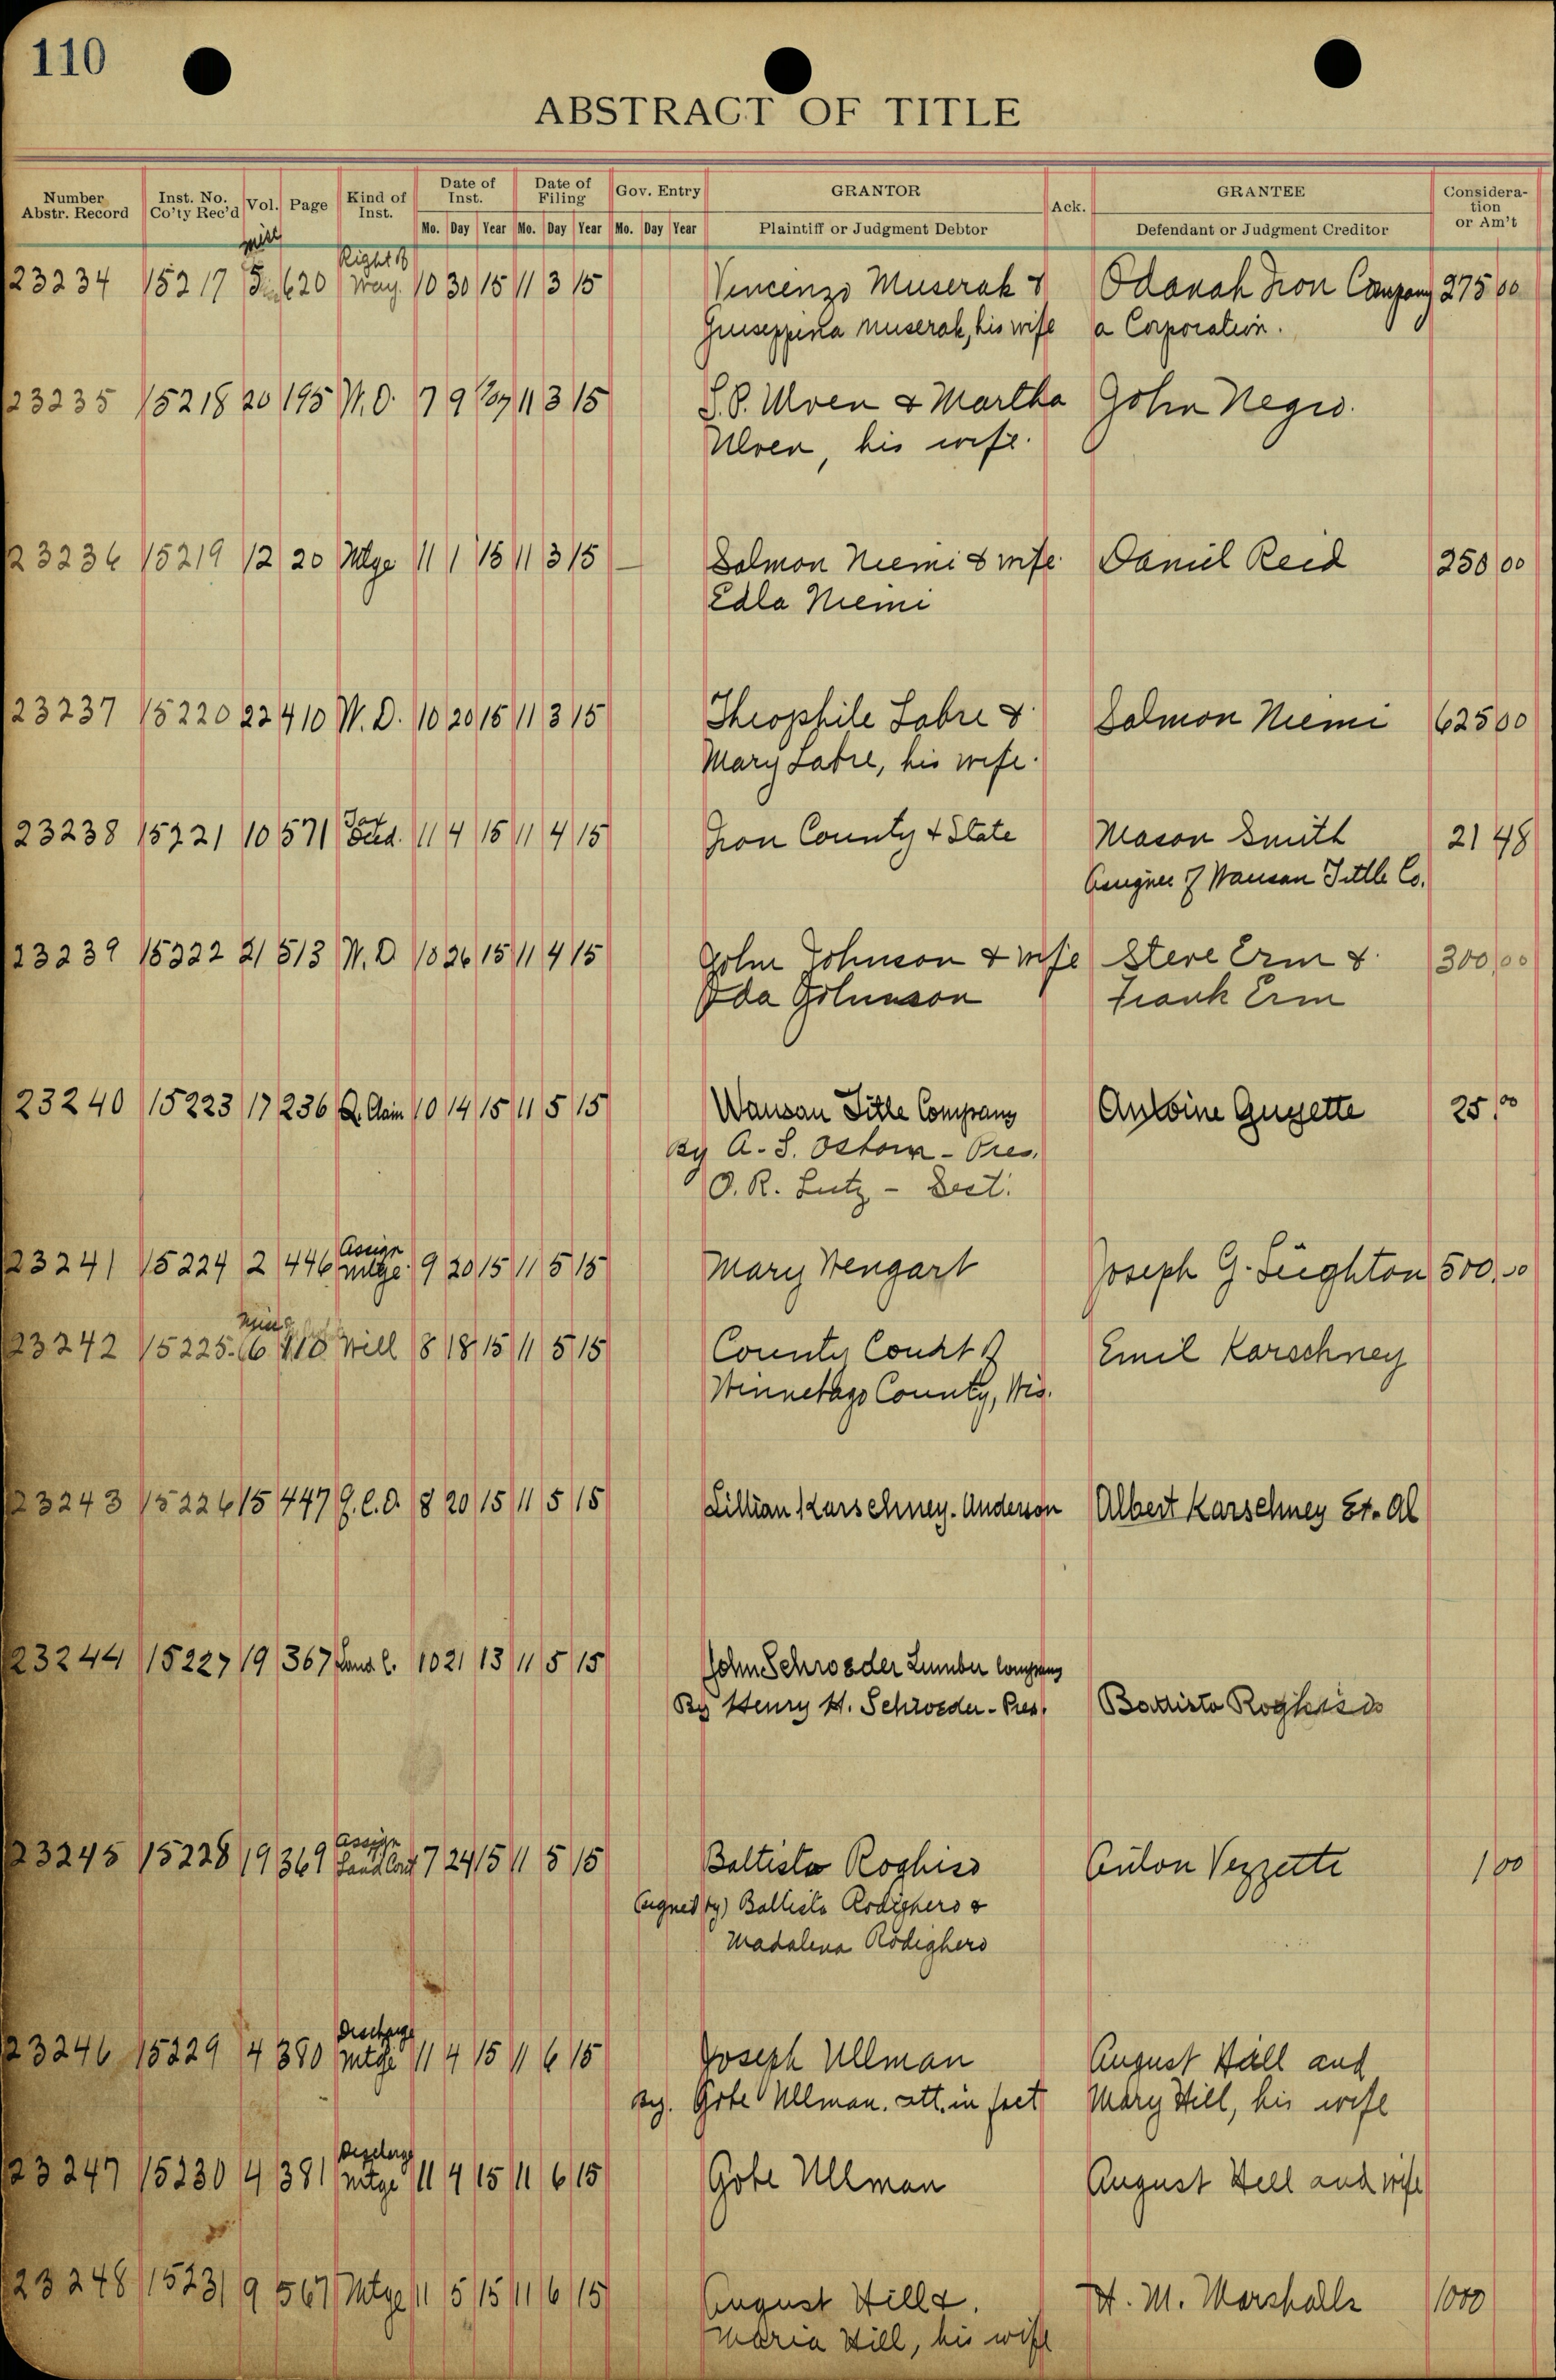 110
ABSTRACT OF TITLE
Number Abstr. Record Inst. No. Co'ty Rec'd Vol. Page Kind of Inst. Date of Inst. Date of Filing Gov. Entry GRANTOR Ack. GRANTEE Consideration or Am't
Mo. Day Year Mo. Day Year Mo. Day Year Plaintiff or Judgment Debtor Defendant or Judgment Creditor
misc Right of
23234 15217 620 Way. 10 30 15 11 3 15 Vincenzo Muserak & Odanah Iron Company 275 00
Guiseppina Muserak, his wife a Corporation.
23235 15218 20 195 W.D. 7 9 11 3 15 & Martha John Negro.
Ulven, his wife.
23236 15219 12 20 Mtge 11 1 15 11 3 15 Salmon Niemi & wife Daniel Reid 250 00
Edla Niemi
23237 15220 22 410 W.D. 10 20 15 11 3 15 Theophile Labre & Salmon Niemi 625 00
Mary Labre, his wife.
Tax
23238 15221 10 571 Deed. 11 4 15 11 4 15 Iron County & State Mason Smith 21 48
Assignee of Wausau Tittle Co.
23239 15222 21 513 W.D 10 26 15 11 4 15 John Johnson & wife Steve Erm & 300.00
Ida Johnson Frank Erm
23240 15223 17 236 Q. Claim 10 14 15 11 5 15 Wausau Title Company Antoine Guyette 25.00
By A. S. Osborn - Pres.
O. R. Lutz - Sect.
Assign
23241 15224 2 446 mtge. 9 20 15 11 5 15 Mary Wengart Joseph G. Leighton 500.00
23242 15225. 6 410 Will 8 18 15 11 5 15 County Court of Emil Karschney
Winnebago County, Wis.
23243 15226 15 447 Q.C.D. 8 20 15 11 5 15 Lillian Karschney-Anderson Albert Karschney Et. Al
23244 15227 19 367 Land C. 10 21 13 11 5 15 John Schroeder Lumber Company
By Henry H. Schroeder - Pres. Battista
Assign
23245 15228 19 369 Land Cont 7 24 15 11 5 15 Battista Roghiso Anton Vezzette 1 00
(signed by) Battista Rodighero &
Madalena Rodighero
Discharge
23246 15229 4 380 Mtge 11 4 15 11 6 15 Joseph Ullman August Hill and
By. Gobe Ullman. att. in fact Mary Hill, his wife
Discharge
23247 15230 4 381 Mtge 11 4 15 11 6 15 Gobe Ullman August Hill and wife
23248 15231 9 567 Mtge 11 5 15 11 6 15 August Hill &. H. M. Marshalls 1000
Maria Hill, his wife